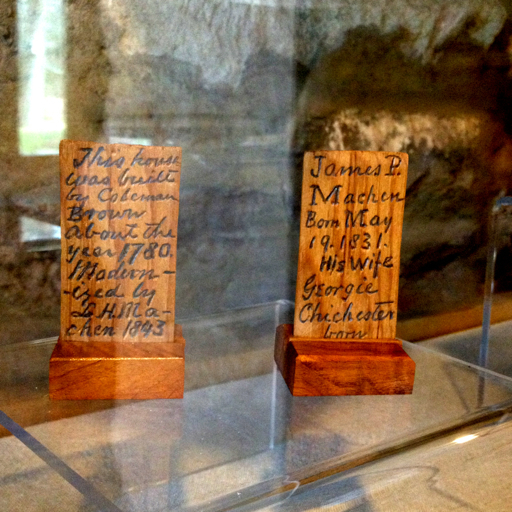 This house
was built
by Coleman
Brown
about the
year 1780.
Modern-
-ized by
L.H.Ma-
chen 1843
James P.
Machen
Born May
19.1831.
His Wife
Georgie
Chichester
born